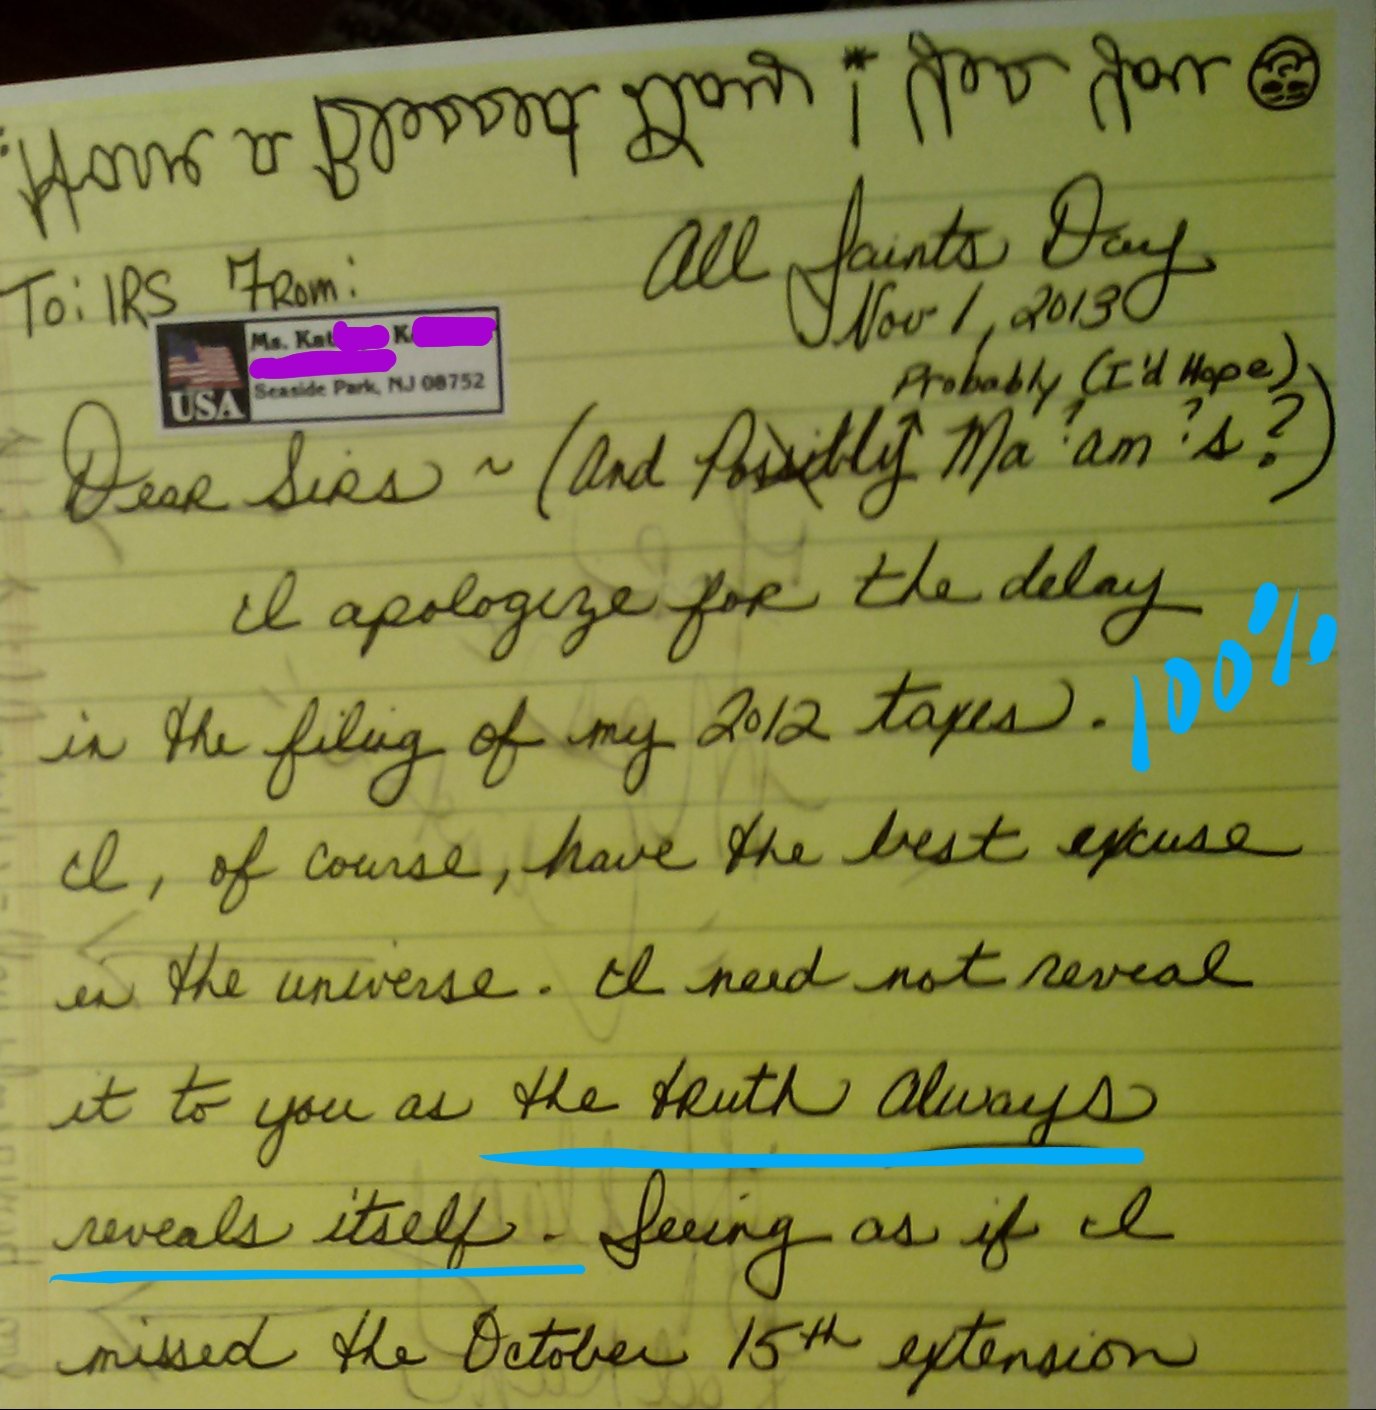 Have a Blessed
All Saints Day
Nov 1, 2013
To: IRS From:
Ms. Kat K
Seaside Park, NJ 08752
USA
Probably (I'd Hope)
Dear Sirs ~ (And Possibly Ma'?am'?s?)
I apologize for the delay
in the filing of my 2012 taxes. 100%
I, of course, have the best excuse
in the universe. I need not reveal
it to you as the truth always
reveals itself. Seeing as if I
missed the October 15th extension